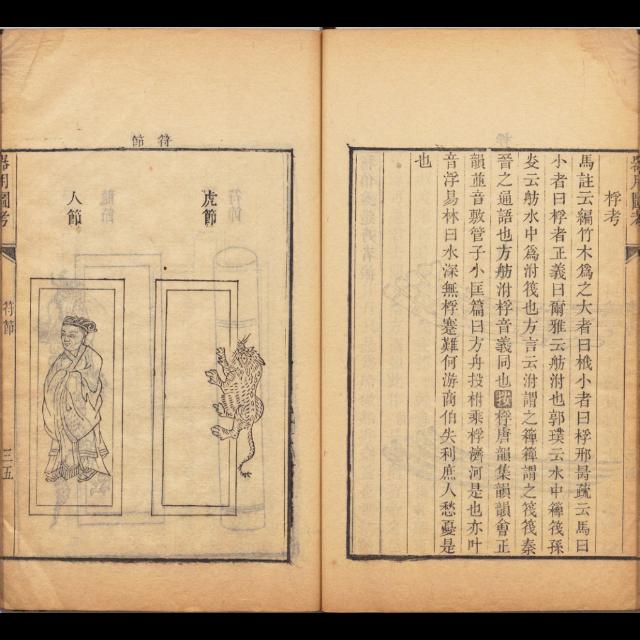 桴考
馬註云編竹木爲之大者曰栰小者曰桴邢昺疏云馬曰
小者曰桴者正義曰爾雅云舫泭也郭璞云水中𥱼筏孫
炎云舫水中爲泭筏也方言云泭謂之𥱼𥱼謂之筏筏秦
晉之通語也方舫泭桴音義同也按桴唐韻集韻韻會正
韻並音敷管子小匡篇曰方舟投柎乘桴濟河是也亦叶
音浮易林曰水深無桴蹇難何游商伯失利庶人愁憂是
也
符節
虎節
人節
器用圖考
符節
三五